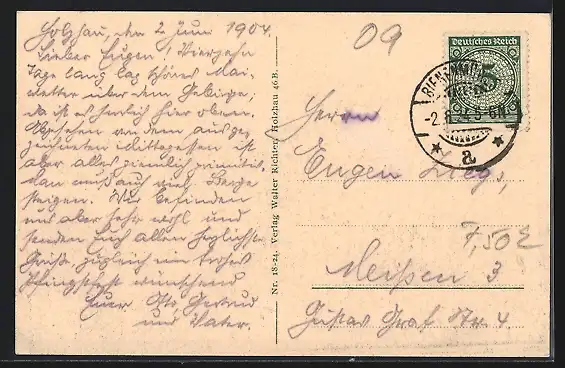 Holzhau, den 2 Juni 1904.
Lieber Eugen! Vierzehn
Tage lang lag schönes Mai-
wetter über dem Gebirge;
da ist es herrlich hier oben.
Abgesehen von dem ausge-
zeichneten Mittagessen ist
aber alles ziemlich primitiv.
Man muß auch viel Berge
steigen. Wir befinden
uns aber sehr wohl und
senden Euch allen herzlichste
Grüße zugleich ein frohes
Pfingstfest wünschend
Euer Otto, Gertrud
und Vater.
Nr. 18-24. Verlag Walter Richter, Holzhau 46 B.
09
Deutsches Reich
5
BIENENMÜHLE
a
Herrn
Eugen
7,50
Meißen 3
Gustav Graf Str. 4.